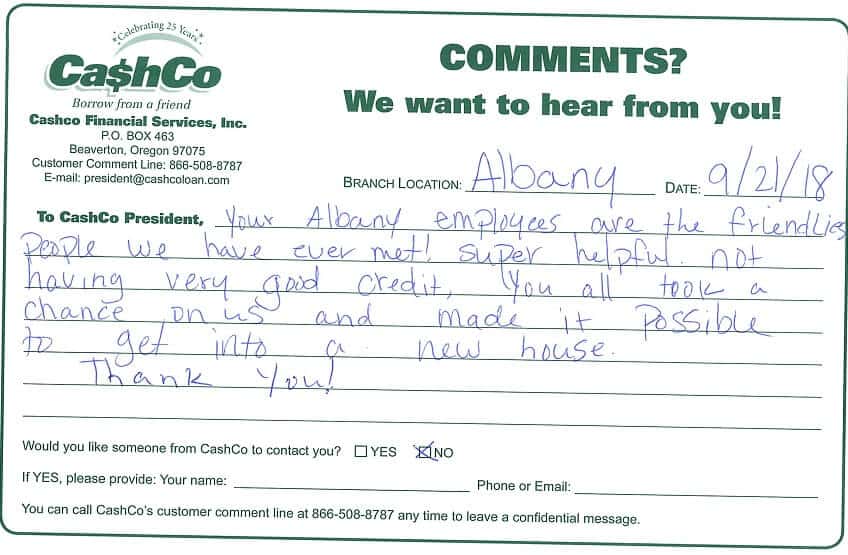 Celebrating 25 Years
Ca$hCo
Borrow from a friend
Cashco Financial Services, Inc.
P.O. BOX 463
Beaverton, Oregon 97075
Customer Comment Line: 866-508-8787
E-mail: president@cashcoloan.com
COMMENTS?
We want to hear from you!
BRANCH LOCATION: Albany DATE: 9/21/18
To CashCo President, Your Albany employees are the friendlies
People we have ever met! super helpful. not
having very good credit, You all took a
chance on us and made it possible
to get into a new house.
Thank You!
Would you like someone from CashCo to contact you? ☐ YES ☒ NO
If YES, please provide: Your name: Phone or Email:
You can call CashCo's customer comment line at 866-508-8787 any time to leave a confidential message.